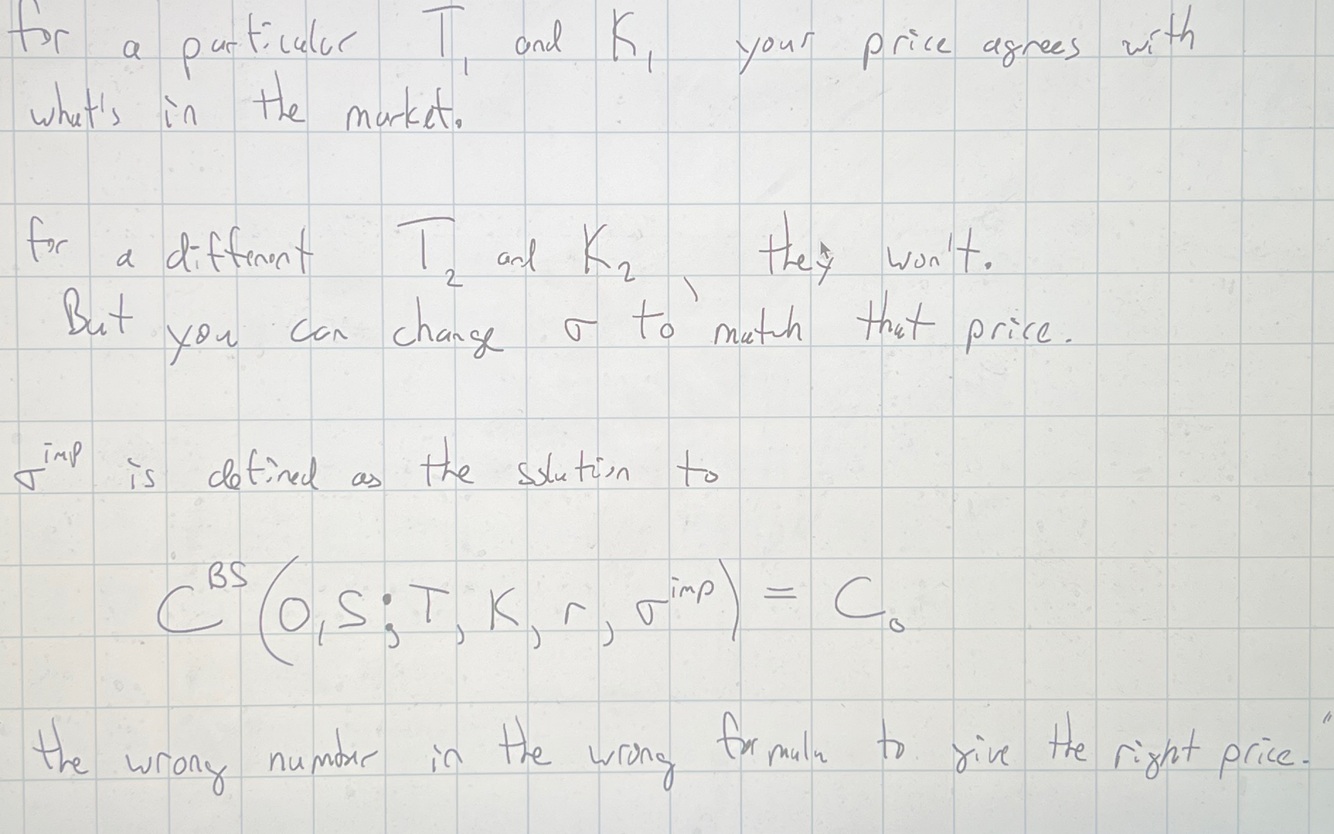 for a particular T₁ and K₁ your price agrees with
what's in the market.
for a different T₂ and K₂, they won't.
But you can change σ to match that price.
σ^imp is defined as the solution to
C^BS(0,S;T,K,r,σ^imp) = C₀
the wrong number in the wrong formula to give the right price."